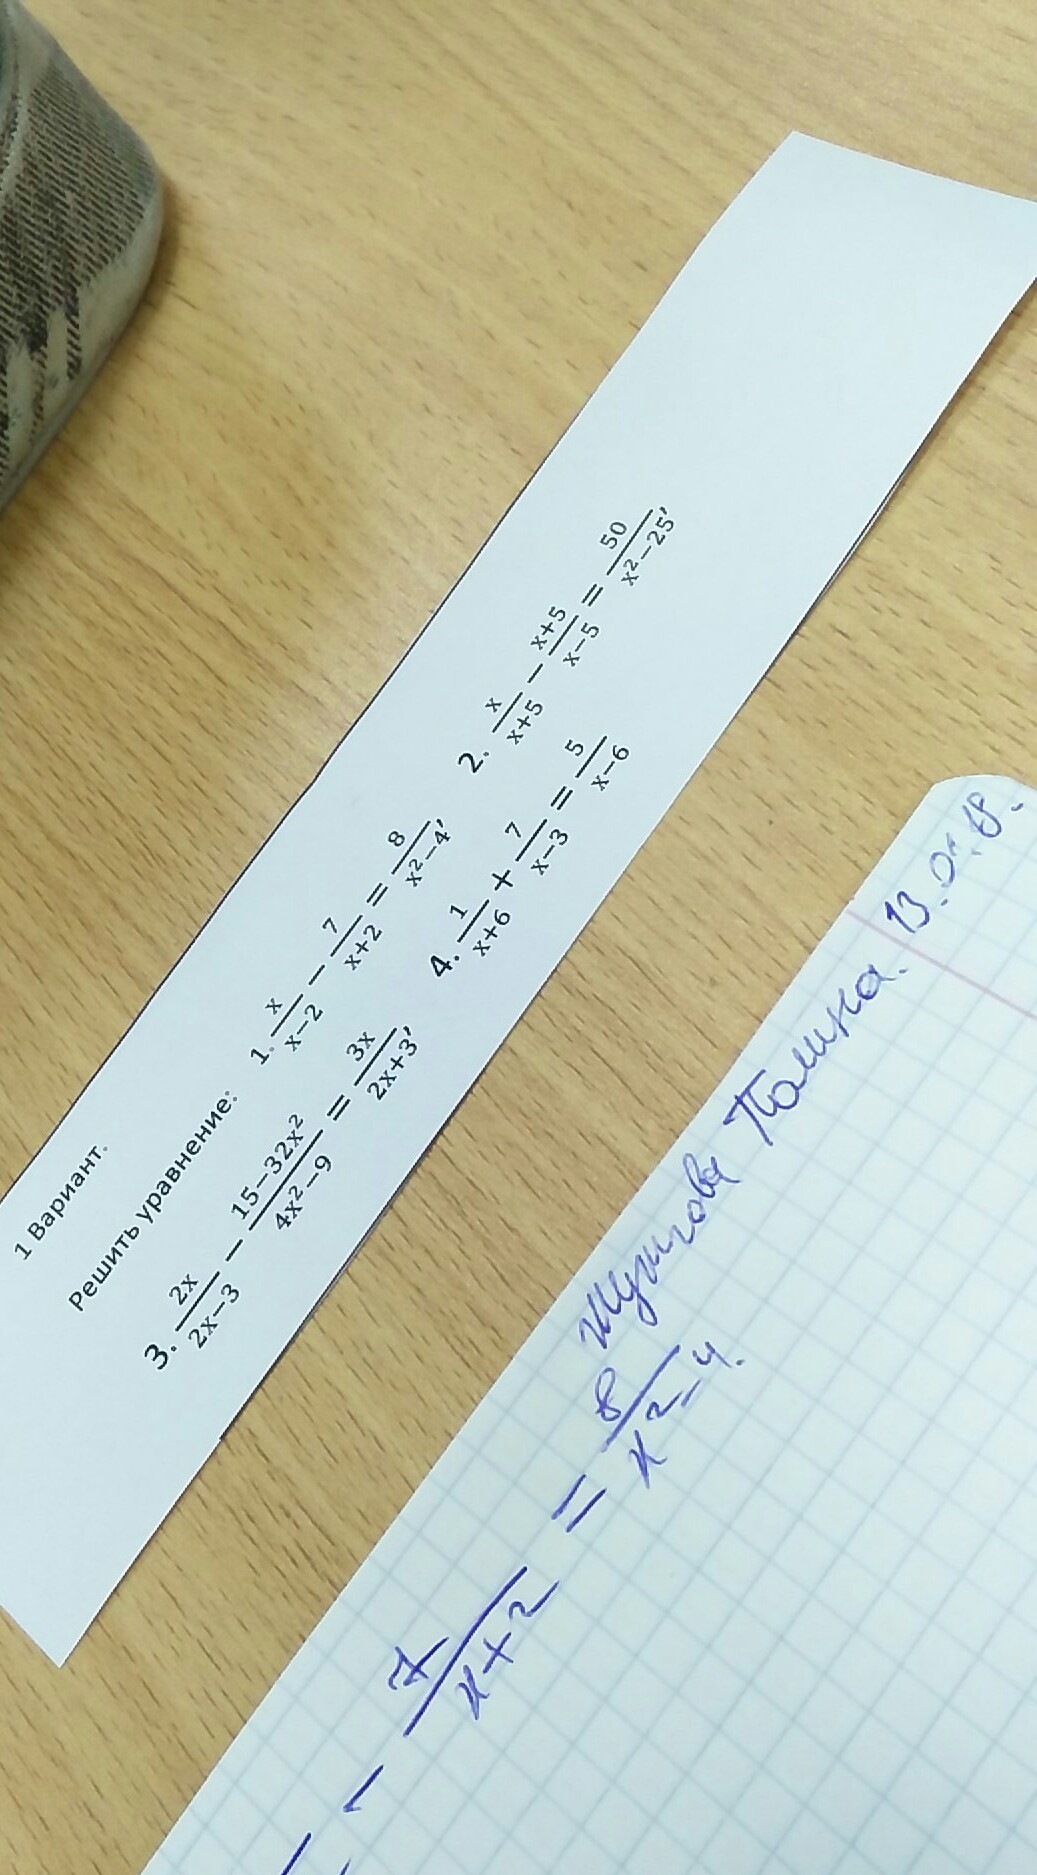 1 Вариант.
Решить уравнение: 1. x/(x−2) − 7/(x+2) = 8/(x²−4), 2. x/(x+5) − (x+5)/(x−5) = 50/(x²−25),
3. 2x/(2x−3) − (15−32x²)/(4x²−9) = 3x/(2x+3), 4. 1/(x+6) + 7/(x−3) = 5/(x−6)
Полина. 13.
− 7/(x+2) = 8/(x²−4).